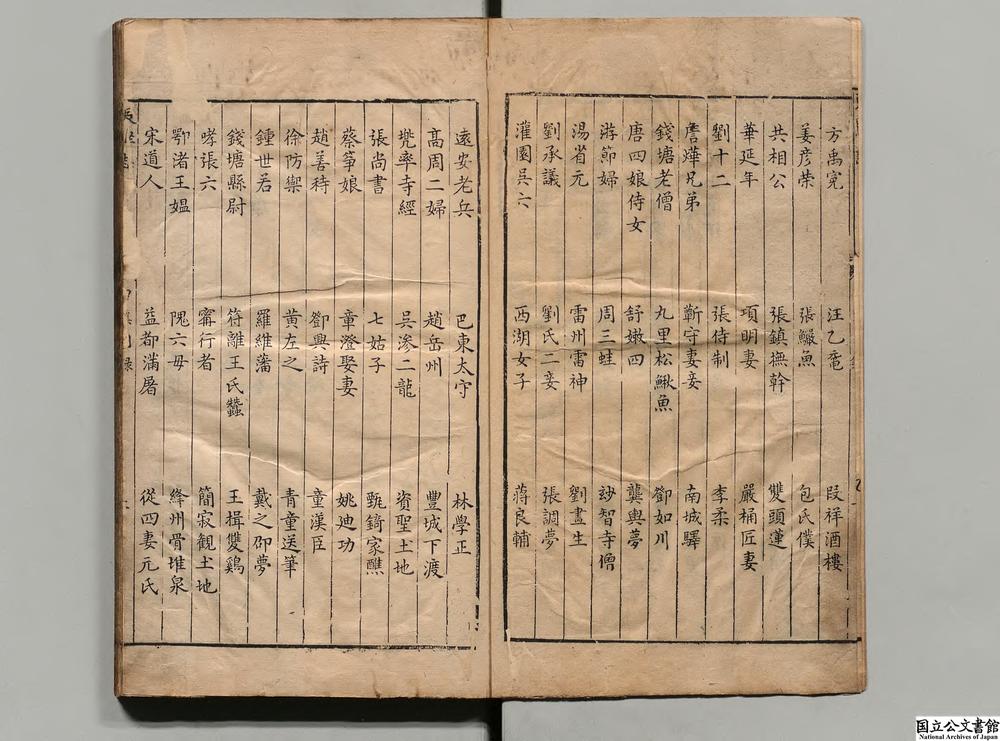 方禹冤 汪乙黿 段祥酒樓
姜彦榮 張鰻魚 包氏僕
共相公 張鎮撫幹 雙頭蓮
華延年 項明妻 嚴桶匠妻
劉十二 張侍制 李柔
詹燁兄弟 靳守妻妾 南城驛
錢塘老僧 九里松鰍魚 鄧如川
唐四娘侍女 舒嫩四 龔輿夢
游節婦 周三蛙 玅智寺僧
湯省元 雷州雷神 劉畫生
劉承議 劉氏二妾 張調夢
灌園吳六 西湖女子 蔣良輔
遠安老兵 巴東太守 林學正
高周二婦 趙岳州 豐城下渡
兠率寺經 吳滲二龍 資聖土地
張尚書 七姑子 甄錡家醮
蔡箏娘 章澄娶妻 姚迪功
趙善待 鄧興詩 童漢臣
徐防禦 黄左之 青童送筆
鍾世若 羅維藩 戴之邵夢
錢塘縣尉 符離王氏蠶 王揖雙鷄
哮張六 甯行者 簡寂観土地
鄂渚王媪 隗六母 絳州骨堆泉
宋道人 益都滿屠 從四妻元氏
国立公文書館
National Archives of Japan